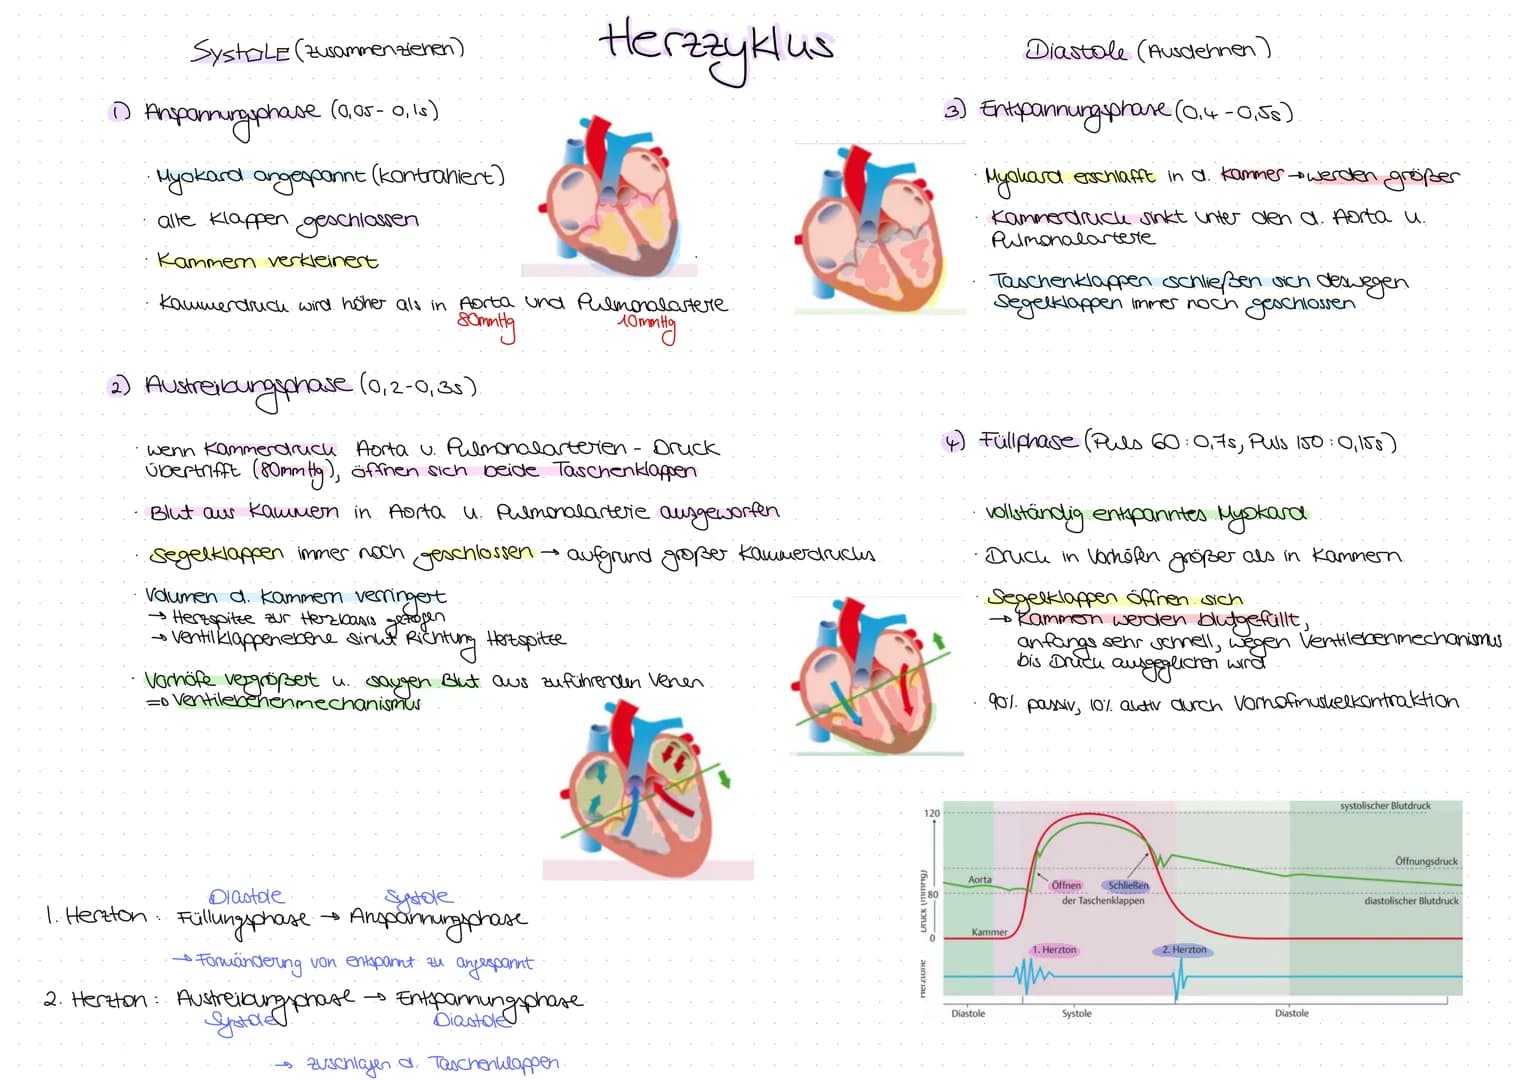 Herzzyklus
Systole (zusammenziehen)
1) Anspannungsphase (0,05-0,1s)
· Myokard angespannt (kontrahiert)
· alle Klappen geschlossen
· Kammern verkleinert
· Kammerdruck wird höher als in Aorta und Pulmonalarterie
80mmHg 10mmHg
2) Austreibungsphase (0,2-0,3s)
· wenn Kammerdruck Aorta u. Pulmonalarterien - Druck
übertrifft (80mmHg), öffnen sich beide Taschenklappen
· Blut aus Kammern in Aorta u. Pulmonalarterie ausgeworfen
· Segelklappen immer noch geschlossen → aufgrund großer Kammerdrucks
· Volumen d. Kammern verringert
→ Herzspitze zur Herzbasis gezogen
→ Ventilklappenebene sinkt Richtung Herzspitze
· Vorhöfe vergrößert u. saugen Blut aus zuführenden Venen
=> Ventilebenenmechanismus
Diastole Systole
1. Herzton: Füllungsphase → Anspannungsphase
→ Formänderung von entspannt zu angespannt
2. Herzton: Austreibungsphase → Entspannungsphase
Systole Diastole
→ zuschlagen d. Taschenklappen
Diastole (Ausdehnen)
3) Entspannungsphase (0,4-0,5s)
· Myokard erschlafft in d. Kammer → werden größer
· Kammerdruck sinkt unter den d. Aorta u.
Pulmonalarterie
· Taschenklappen schließen sich deswegen
Segelklappen immer noch geschlossen
4) Füllphase (Puls 60:0,7s, Puls 150:0,15s)
· vollständig entspanntes Myokard
· Druck in Vorhöfen größer als in Kammern
· Segelklappen öffnen sich
→ Kammern werden blutgefüllt,
anfangs sehr schnell, wegen Ventilebenmechanismus
bis Druck ausgeglichen wird
· 90% passiv, 10% aktiv durch Vorhofmuskelkontraktion
systolischer Blutdruck
120
Öffnungsdruck
Aorta
Öffnen Schließen
der Taschenklappen
diastolischer Blutdruck
Druck (mmHg)
80
Kammer
0
1. Herzton 2. Herzton
Herztöne
Diastole Systole Diastole